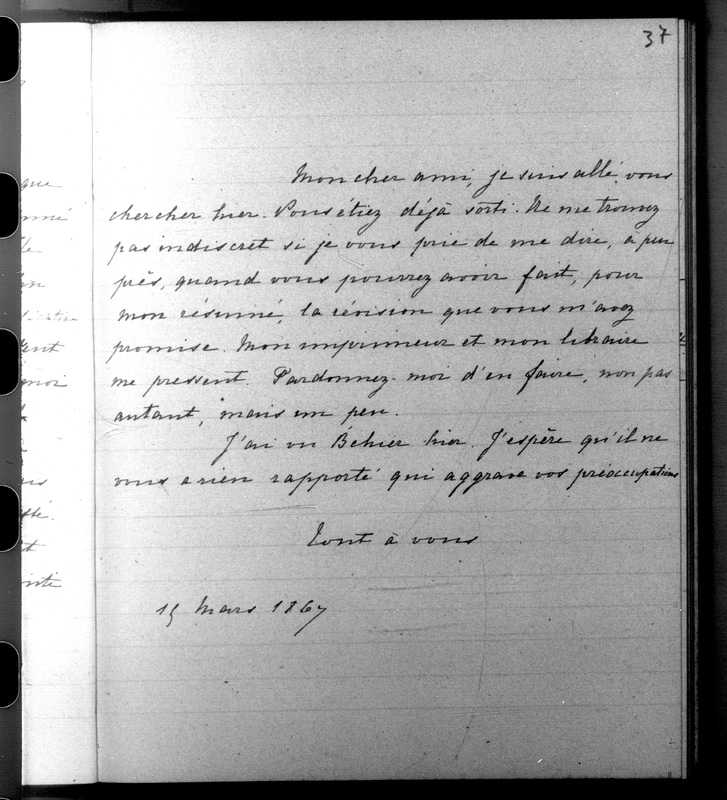 37
Mon cher ami, je suis allé vous
chercher hier. Vous étiez déjà sorti. Ne me trouvez
pas indiscret si je vous prie de me dire, à peu
près, quand vous pourrez avoir fait, pour
mon résumé, la révision que vous m'avez
promise. Mon imprimeur et mon libraire
me pressent. Pardonnez-moi d'en faire, non pas
autant, mais un peu.
J'ai vu Béhier hier. J'espère qu'il ne
vous a rien rapporté qui aggrave vos préoccupations
Tout à vous
15 Mars 1867
que
nné
le
ent
moi
us
nte